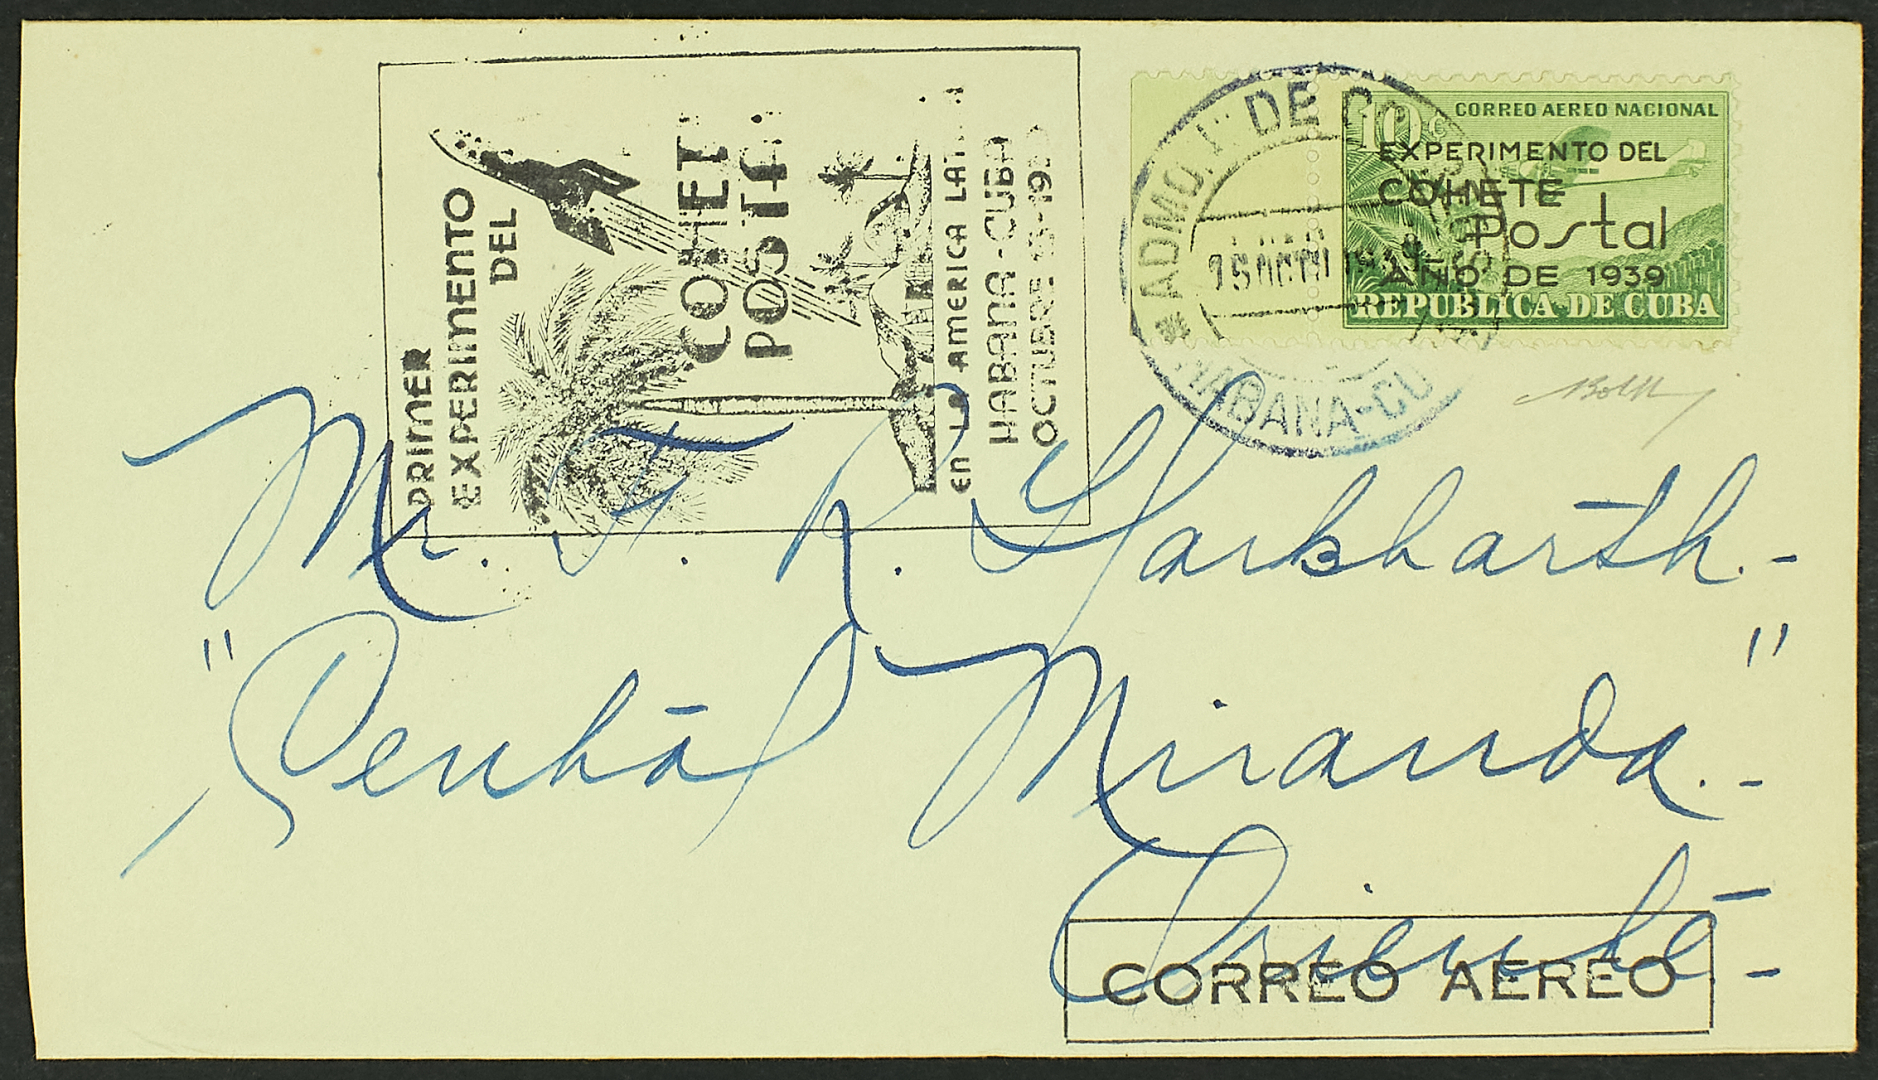 PRIMER
EXPERIMENTO
DEL
COHETE
POSTAL
en LA AMERICA LATINA
HABANA-CUBA
OCTUBRE
ADMON. DE CO
HABANA-CU
10 c
CORREO AEREO NACIONAL
EXPERIMENTO DEL
COHETE
Postal
AÑO DE 1939
REPUBLICA DE CUBA
Mr. F. R.
"Central Miranda.-"
Oriente-
CORREO AEREO